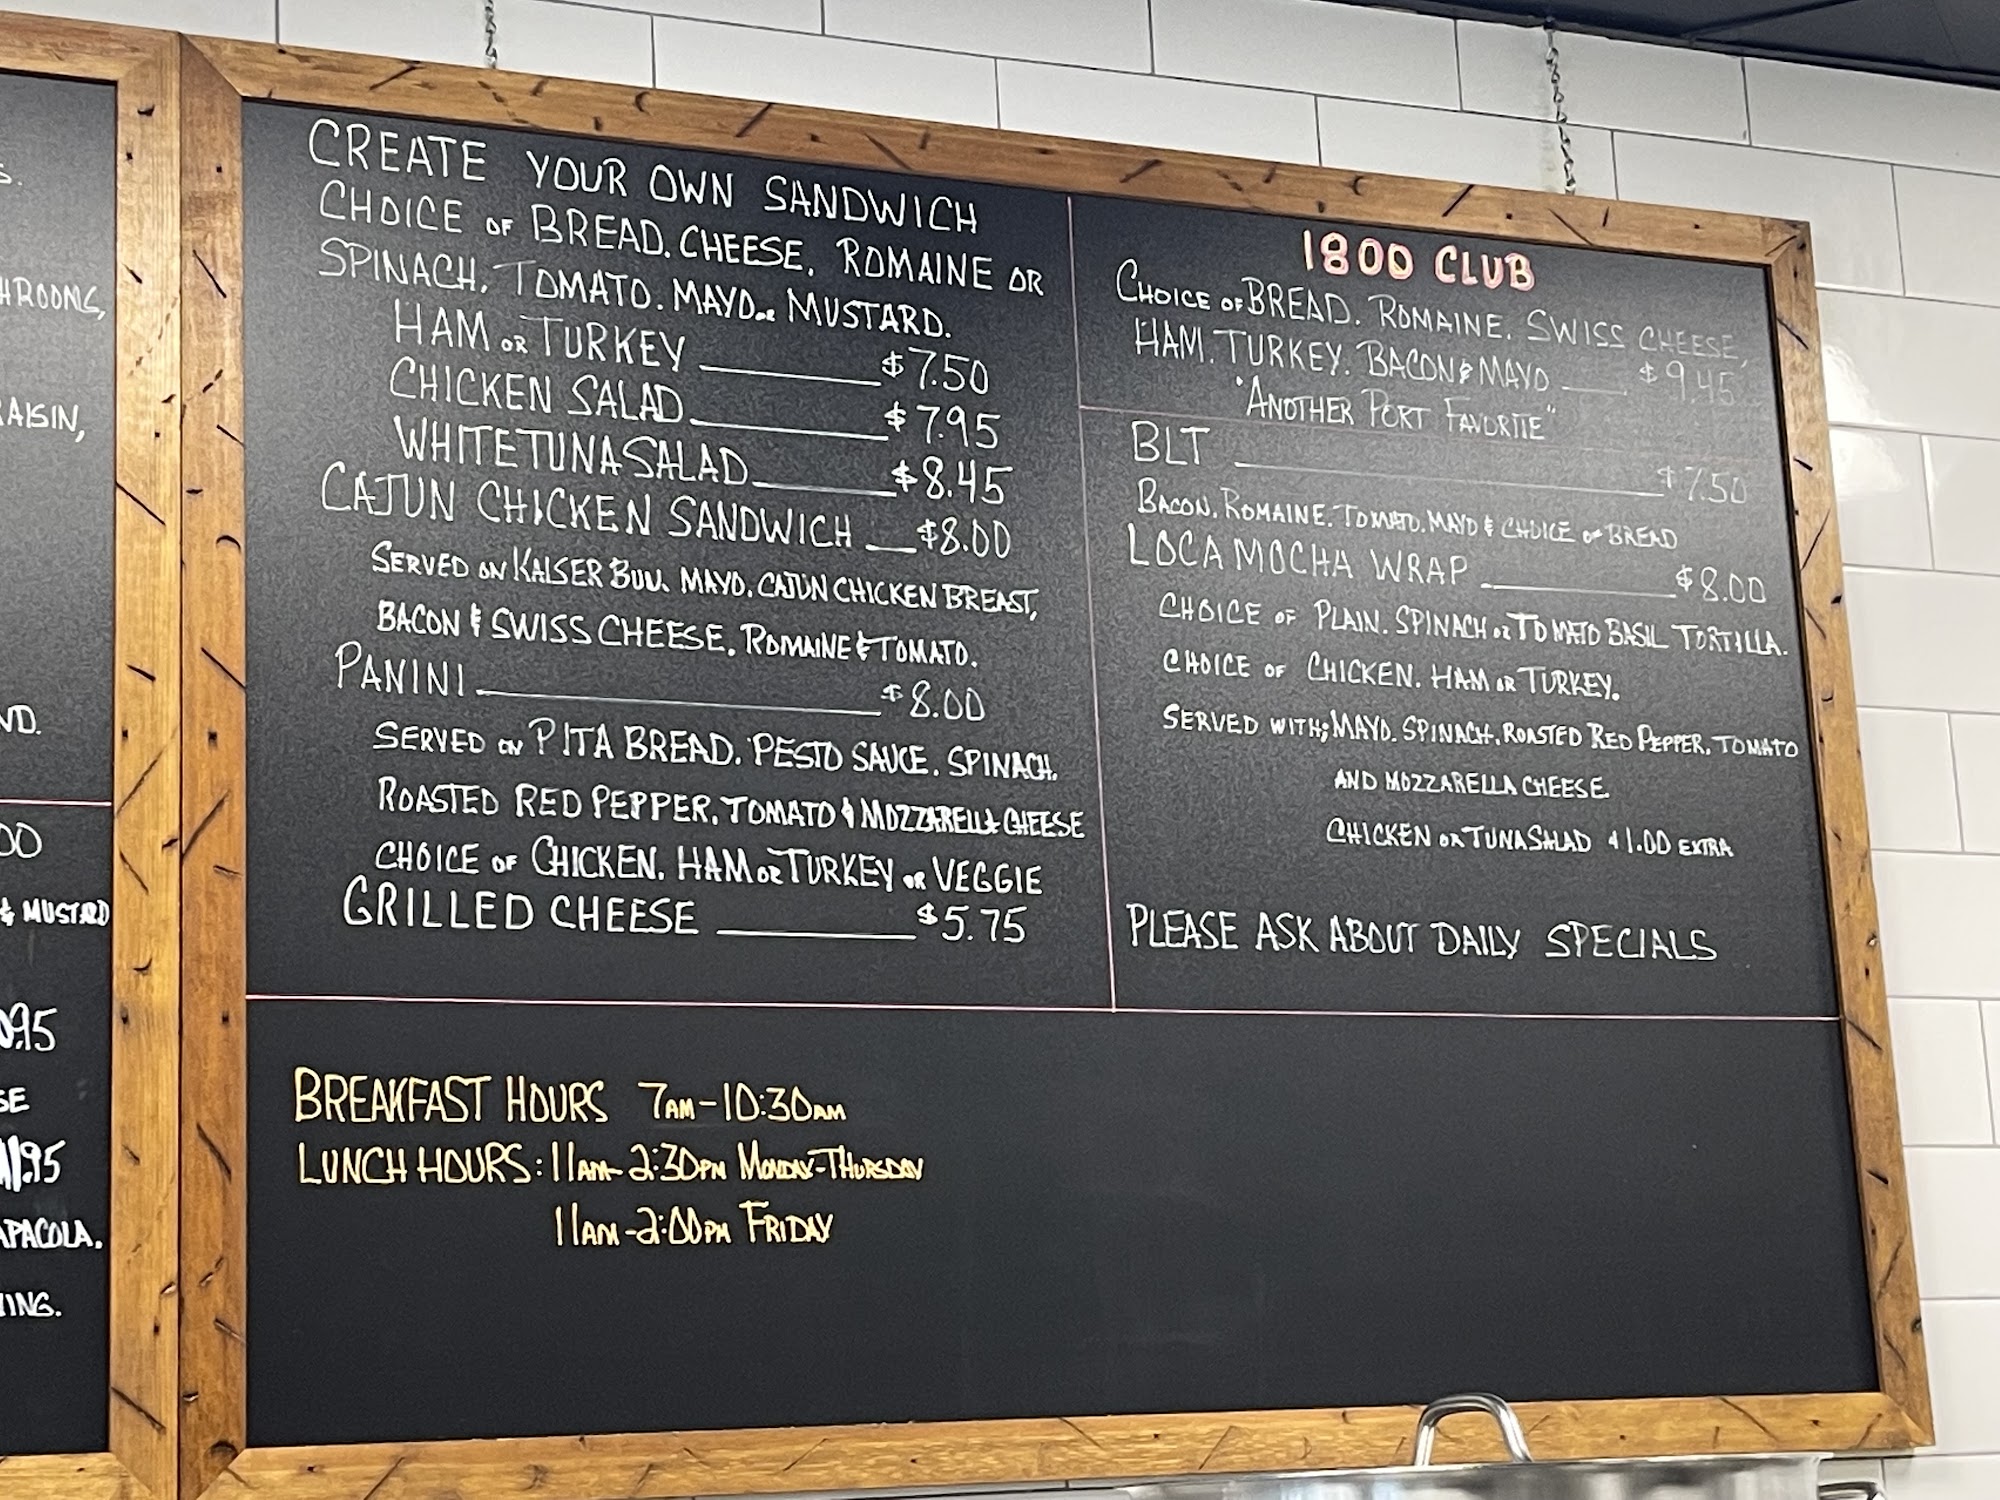 S.
HROOMS,
RAISIN,
ND.
00
& MUSTARD
0.95
SE
11.95
APACOLA.
ING.
CREATE YOUR OWN SANDWICH
CHOICE OF BREAD. CHEESE. ROMAINE OR
SPINACH. TOMATO. MAYO OR MUSTARD.
HAM OR TURKEY $7.50
CHICKEN SALAD $7.95
WHITE TUNA SALAD $8.45
CAJUN CHICKEN SANDWICH $8.00
SERVED ON KAISER BUN. MAYO. CAJUN CHICKEN BREAST,
BACON & SWISS CHEESE. ROMAINE & TOMATO.
PANINI $8.00
SERVED ON PITA BREAD. PESTO SAUCE. SPINACH.
ROASTED RED PEPPER. TOMATO & MOZZARELLA CHEESE
CHOICE OF CHICKEN. HAM OR TURKEY OR VEGGIE
GRILLED CHEESE $5.75
1800 CLUB
CHOICE OF BREAD. ROMAINE. SWISS CHEESE,
HAM. TURKEY. BACON & MAYO $9.45
"ANOTHER PORT FAVORTIE"
BLT $7.50
BACON. ROMAINE. TOMATO. MAYO & CHOICE OF BREAD
LOCA MOCHA WRAP $8.00
CHOICE OF PLAIN. SPINACH OR TOMATO BASIL TORTILLA.
CHOICE OF CHICKEN. HAM OR TURKEY.
SERVED WITH; MAYO. SPINACH. ROASTED RED PEPPER. TOMATO
AND MOZZARELLA CHEESE.
CHICKEN OR TUNA SALAD $1.00 EXTRA
PLEASE ASK ABOUT DAILY SPECIALS
BREAKFAST HOURS 7AM-10:30AM
LUNCH HOURS: 11AM-2:30PM MONDAY-THURSDAY
11AM-2:00PM FRIDAY